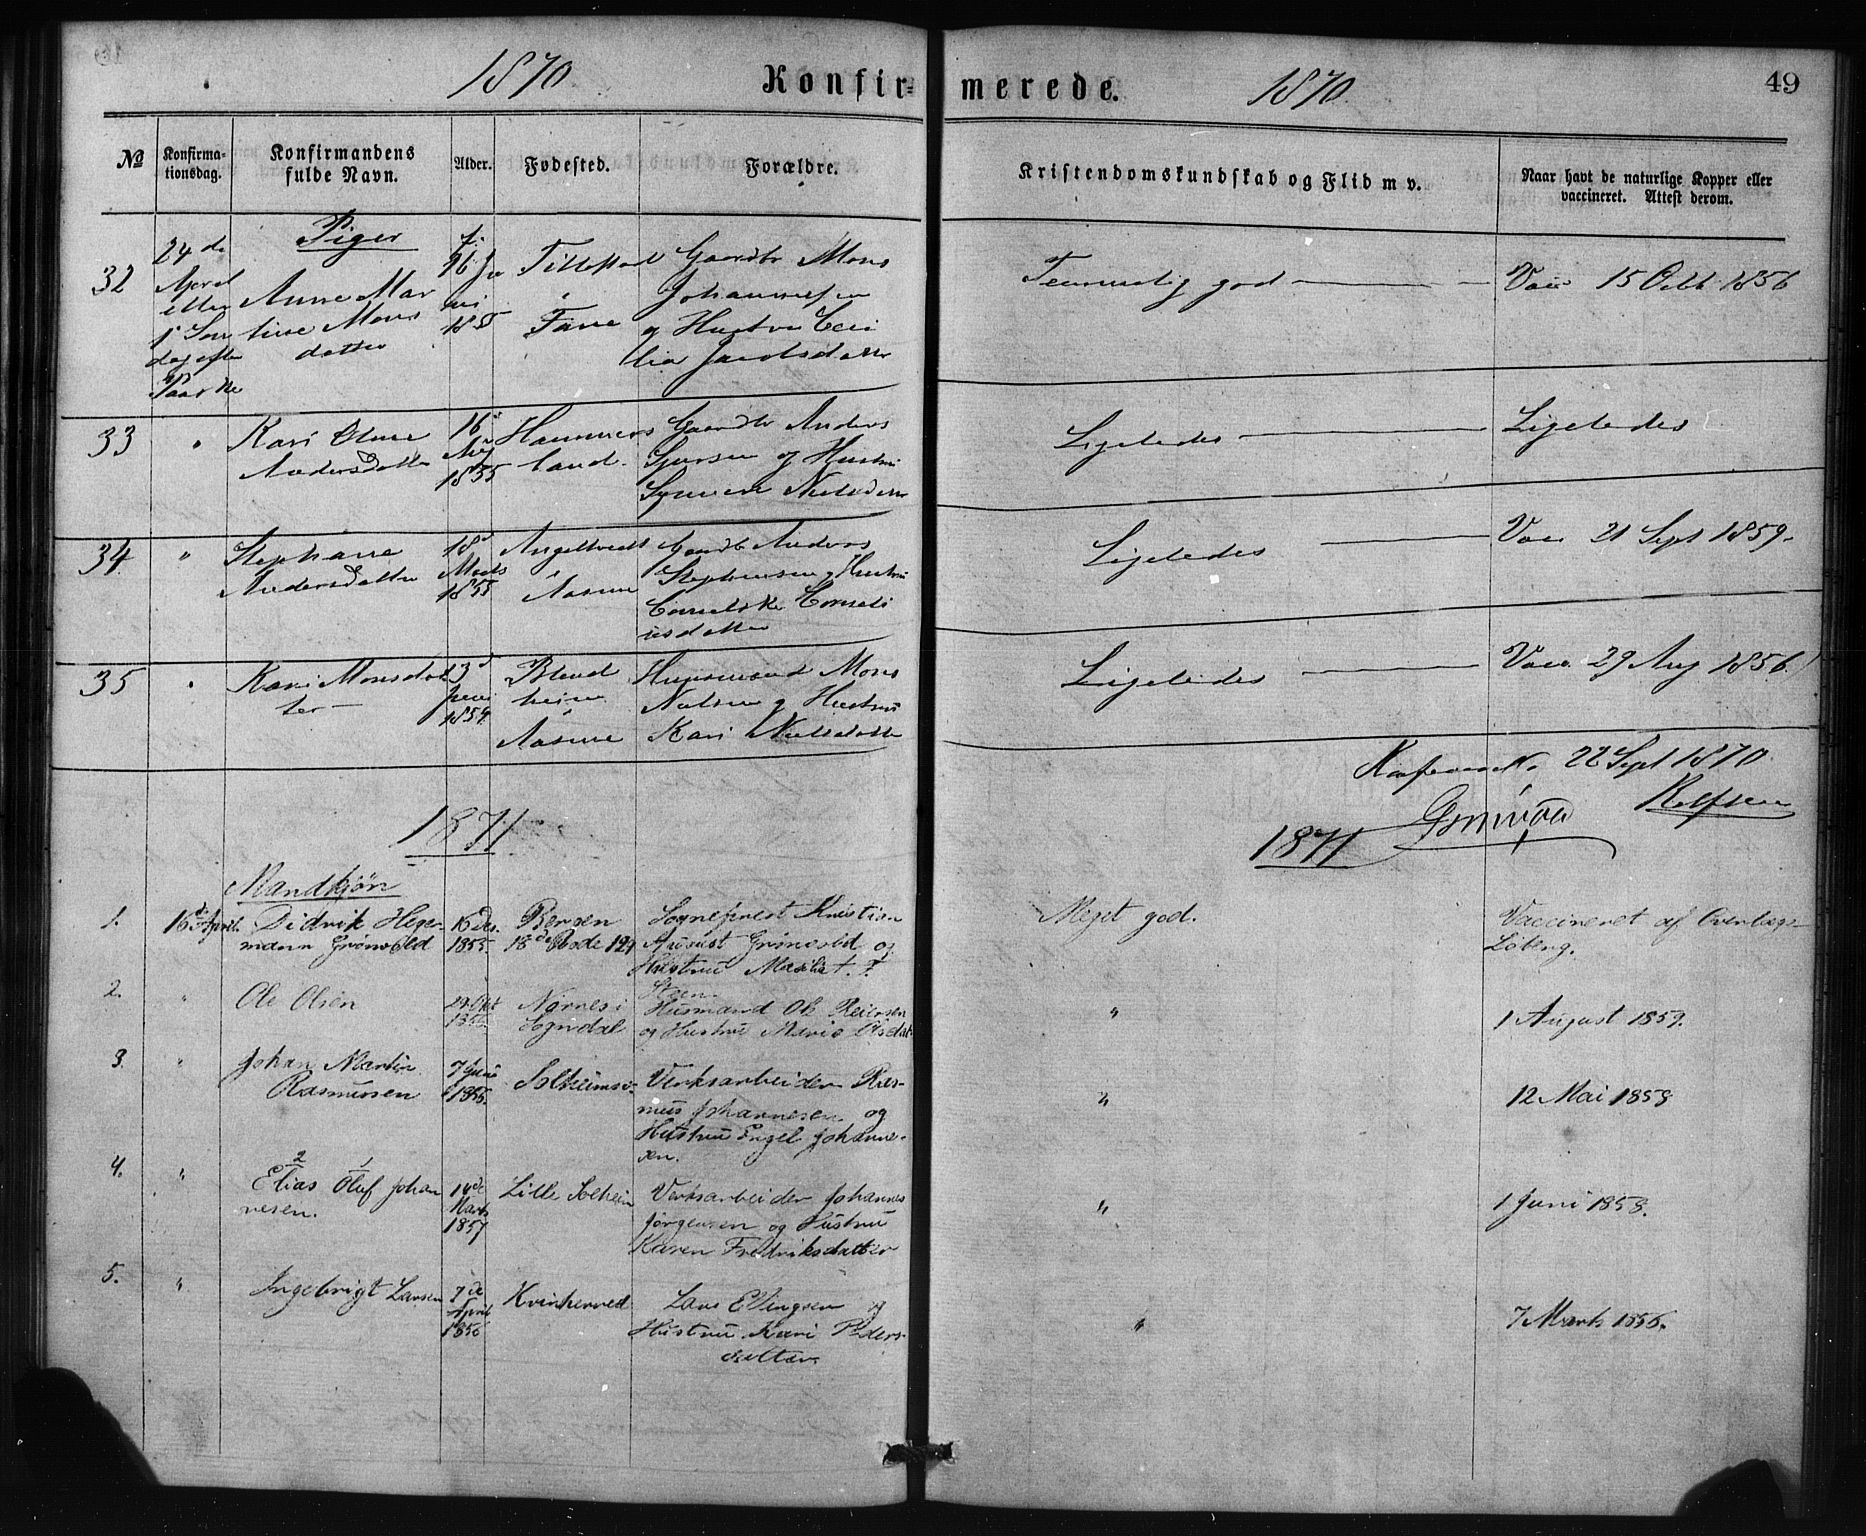 1870
Konfir-
merede.
1870.
49
No
Konfirma-
tionsdag.
Konfirmandens
fulde Navn.
Alder.
Fødested.
Forældre.
Kristendomskundskab og Flid m v.
Naar havt de naturlige Kopper eller
vaccineret. Attest derom.
Piger
32
24de
April
eller
1 Søn
dag efter
Paaske
Anne Mar
tine Mons
datter
1855
i
Fane
Gaardbr Mons
Johannesen
og Hustru Ceci
lia Jacobsdatter
Temmelig god
Vac 15 Octb 1856
33
"
Kari Oline
Andersdatter
16
Aug
1855
Hammers
land.
Gaardbr Anders
Sjursen og Hustru
Synneva Nielsdatter
Ligeledes
Ligeledes
34
"
Stephane
Andersdatter
18
Marts
1855
i
Aasene
Gaardbr Anders
Stephensen og Hustru
Corneli
usdatter
Ligeledes
Vac 21 Sept 1859.
35
"
Kari Monsdat
ter
1854
Blend
heim
i
Aasene
Huusmand Mons
Nielsen og Hustru
Kari Nielsdatter
Ligeledes
Vac 29 Aug 1856
22 Sept 1870
Grønvold
Rolfsen
1871
1871
Mandkjøn
1.
16de April.
Didrik Heger-
mann Grønvold
16 Des.
1855
Bergen
18de Rode 129
Sogneprest Kristian
August Grønvold og
Hustru
Steen.
Meget god.
Vaccineret af Overlæge
Løberg.
2.
"
Ole Olsen
29 Okt
Nornes i
Sogndal
Husmand Ole Reiersen
og Hustru Marie Olsdat
"
1 August 1859.
3.
"
Johan Martin
Rasmussen
7 Juni
1856.
Solheimsv.
Verksarbeider Ras-
mus Johannesen og
Hustru Engel Johanne-
sen.
"
12 Mai 1858
4.
"
2 1
Elias Oluf Johan
nesen.
14de
Marts
1857
Lille Solheim
Verksarbeider Johannes
Jørgensen og Hustru
Karen Fredriksdatter
"
1 Juni 1858.
5.
"
Ingebrigt Larsen
7de
April
1856
Kvinherred
Lars Ellingsen og
Hustru Kari Peders-
datter.
"
7 Marts 1856.